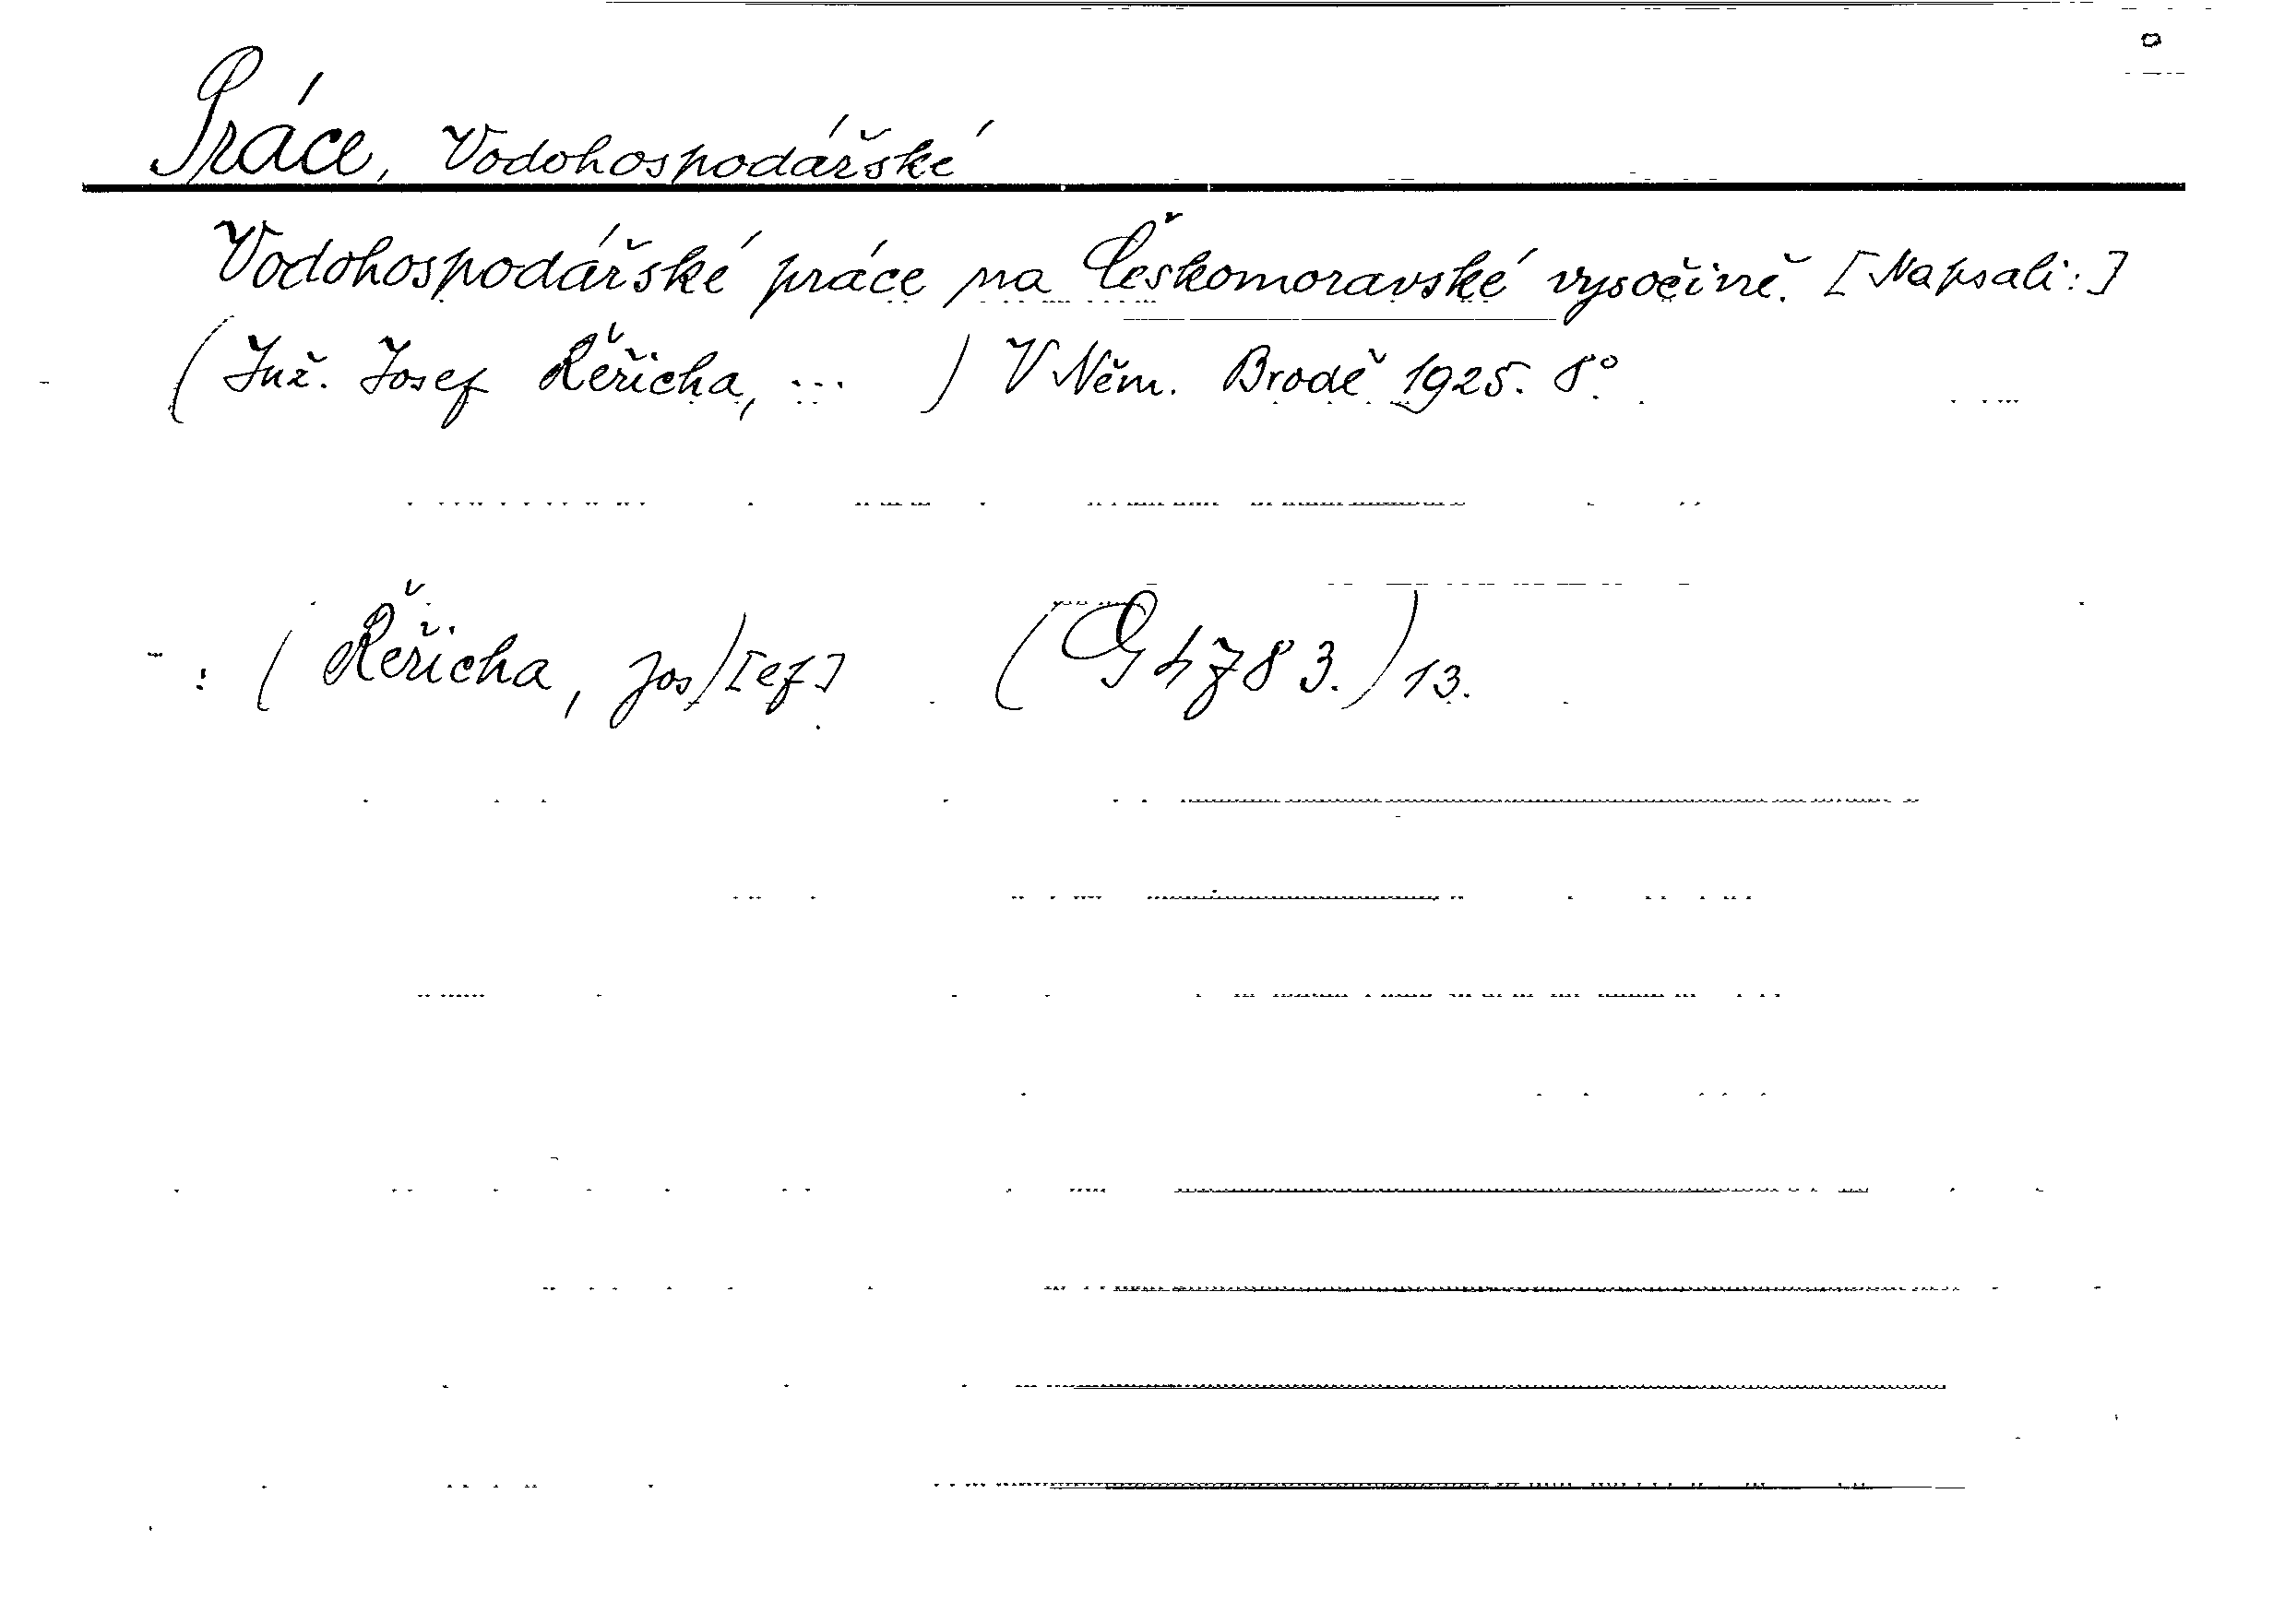 Práce, Vodohospodářské
Vodohospodářské práce na Českomoravské vysočině. [Napsali:]
(Inž. Josef Řeřicha, ... ) V Něm. Brodě 1925. 8°.
: (Řeřicha, Jos)[ef] (G 4783.) 13.